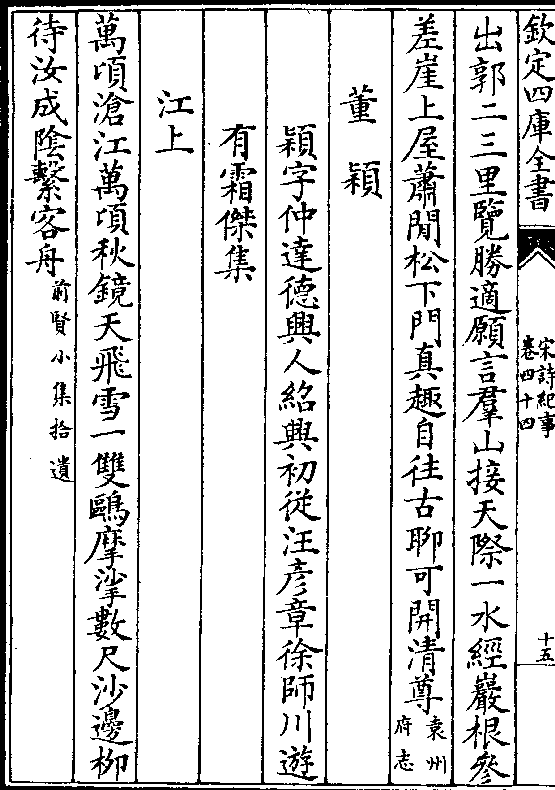 欽定四庫全書
宋詩紀事
卷四十四
十五
出郭二三里覽勝適願言羣山接天際一水經巖根參
差崖上屋蕭閒松下門真趣自往古聊可開清尊袁州府志
董穎
穎字仲達德興人紹興初從汪彦章徐師川遊
有霜傑集
江上
萬頃滄江萬頃秋鏡天飛雪一雙鷗摩挲數尺沙邊栁
待汝成陰繫客舟前賢小集拾遺